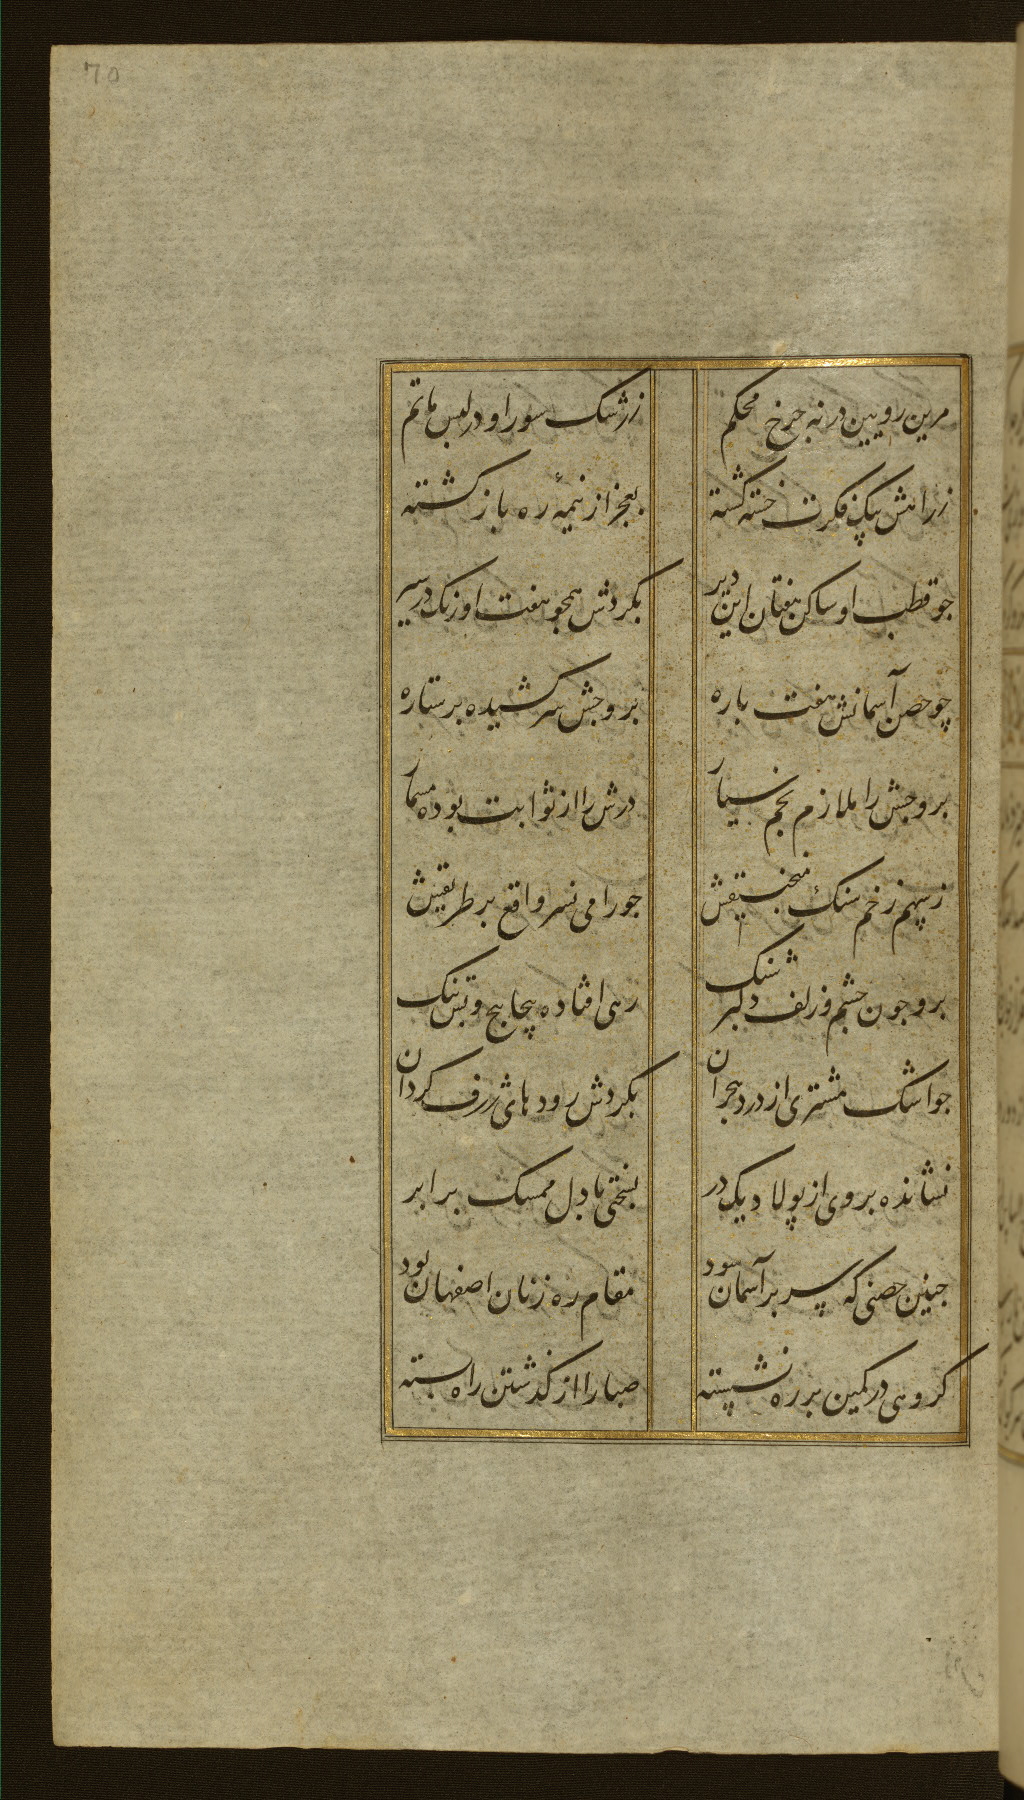 ٦٥
مرین رویین در نه چرخ محکم
زرشک سور او در لبس ماتم
ز راهش پیک فکرت خسته کشته
بعجز از نیمهٔ ره باز کشته
جو قطب او ساکن هفتان این دیر
بکردش همجو هفت اورنک در سیر
چو حصن آسمانش هفت باره
بروجش سر کشیده بر ستاره
بروجش را ملازم نجم سیار
درش را از ثوابت بوده مسمار
ز سهم زخم سنک منجنیقش
جو رامی نسر واقع بر طریقش
برو جون جشم و زلف دلبر شنک
رهی افتاده پیچابیج و بس تنک
جو اشک مشتری از درد هجران
بکردش رودهای ژرف کردان
نشانده بر وی از پولاد یک در
بسختی با دل ممسک برابر
جنین حصنی که سر بر آسمان سود
مقام ره زنان اصفهان بود
کروهی در کمین بر ره نشسته
صبا را از کذشتن راه بسته